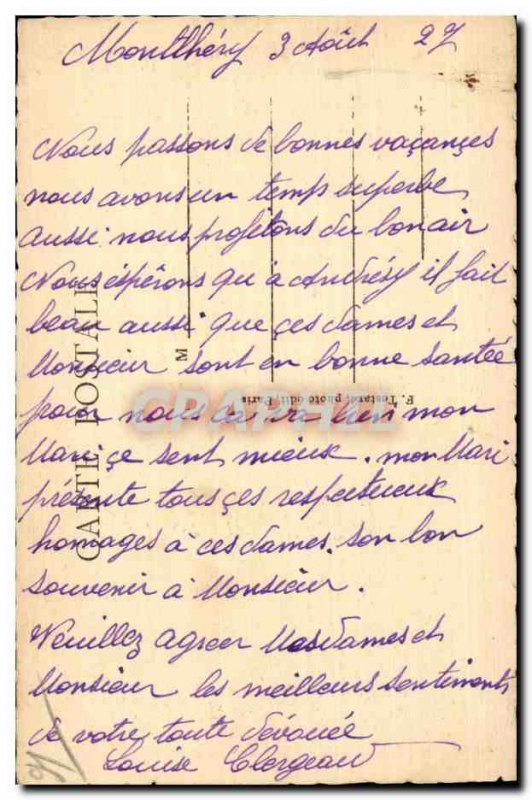 Montlhéry 3 Août 27
Nous passons de bonnes vaçançes
nous avons un temps superbe
aussi nous profitons du bon air
Nous éspérons qu'à Andrésy il fait
beau aussi que çes dames et
Monsieur sont en bonne santée
pour nous ça va bien mon
Mari çe sent mieux. mon Mari
présente tous çes respectueux
homages à ces dames. son bon
souvenir à Monsieur.
Veuillez agreer Mesdames et
Monsieur les meilleurs sentiments
de votre toute dévouée
Louise Clergeau
CARTE POSTALE
M
F. Testard, photo édit, Paris